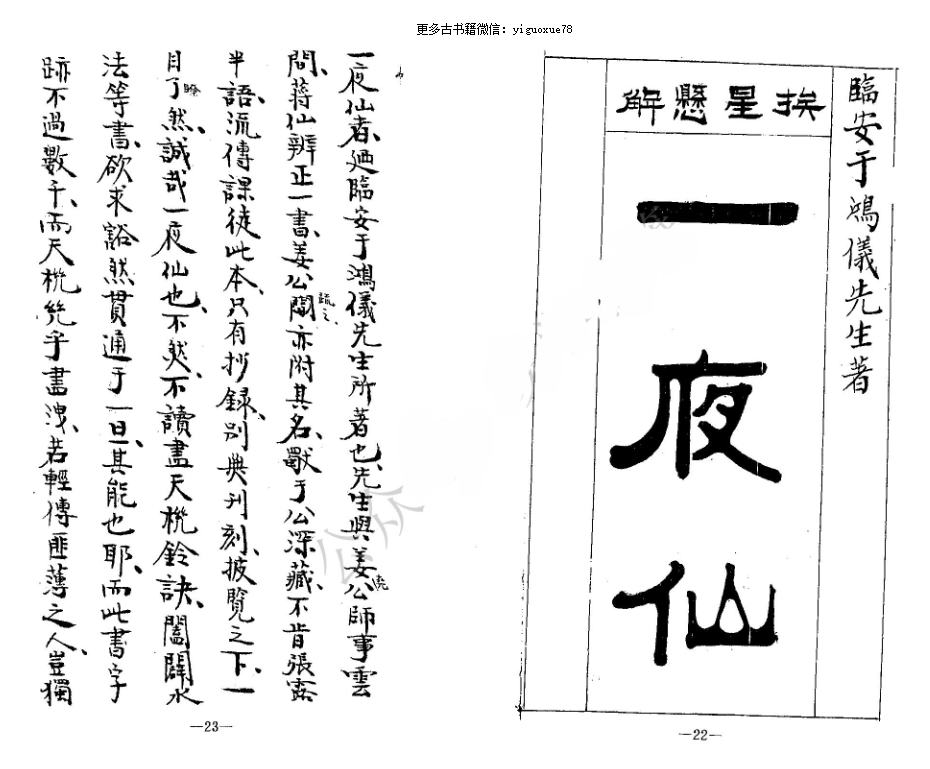 更多古书籍微信：yiguoxue78
臨安于鴻儀先生著
挨星懸解
一夜仙
—22—
一夜仙者、廼臨安于鴻儀先生所著也、先生與姜公堯師事雲
間、蔣仙辨正一書、姜公闡疏之、亦附其名、獨于公深藏、不肯張露
半語、流傳課徒此本、只有抄錄、別無刊刻、披覽之下、一
目了然、誠哉一夜仙也、不然、不讀盡天機鈐訣、闔闢水
法等書、欲求豁然貫通于一旦、其能也耶、而此書字
跡不過數千、而天機幾乎盡洩、若輕傳匪薄之人、豈獨
—23—
公众